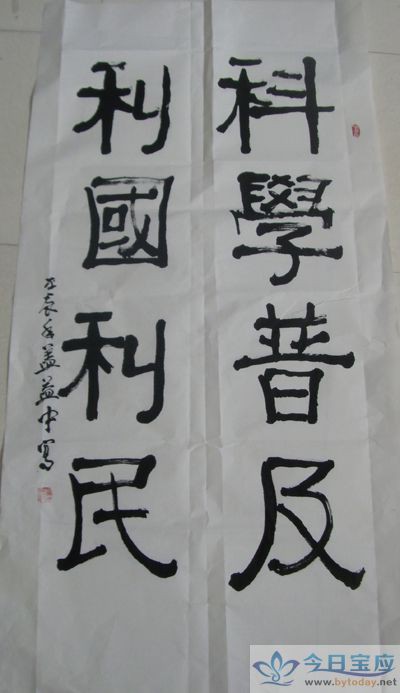 科學普及
利國利民
益中寫
今日宝应
www.bytoday.net